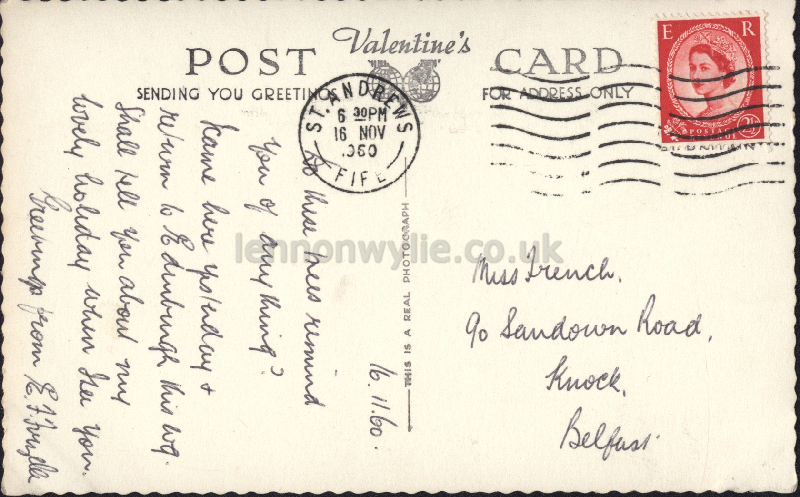 Valentine's
POST CARD
SENDING YOU GREETINGS
FOR ADDRESS ONLY
E R
POSTAGE
2½
ST. ANDREWS
6 30PM
16 NOV
1960
FIFE
THIS IS A REAL PHOTOGRAPH
16.11.60.
Do these trees remind
you of anything?
Came here yesterday &
return to Edinburgh this
Shall tell you about my
lovely holiday when I see you.
Greetings from E.
Miss French,
90 Sandown Road,
Knock,
Belfast.
lennonwylie.co.uk